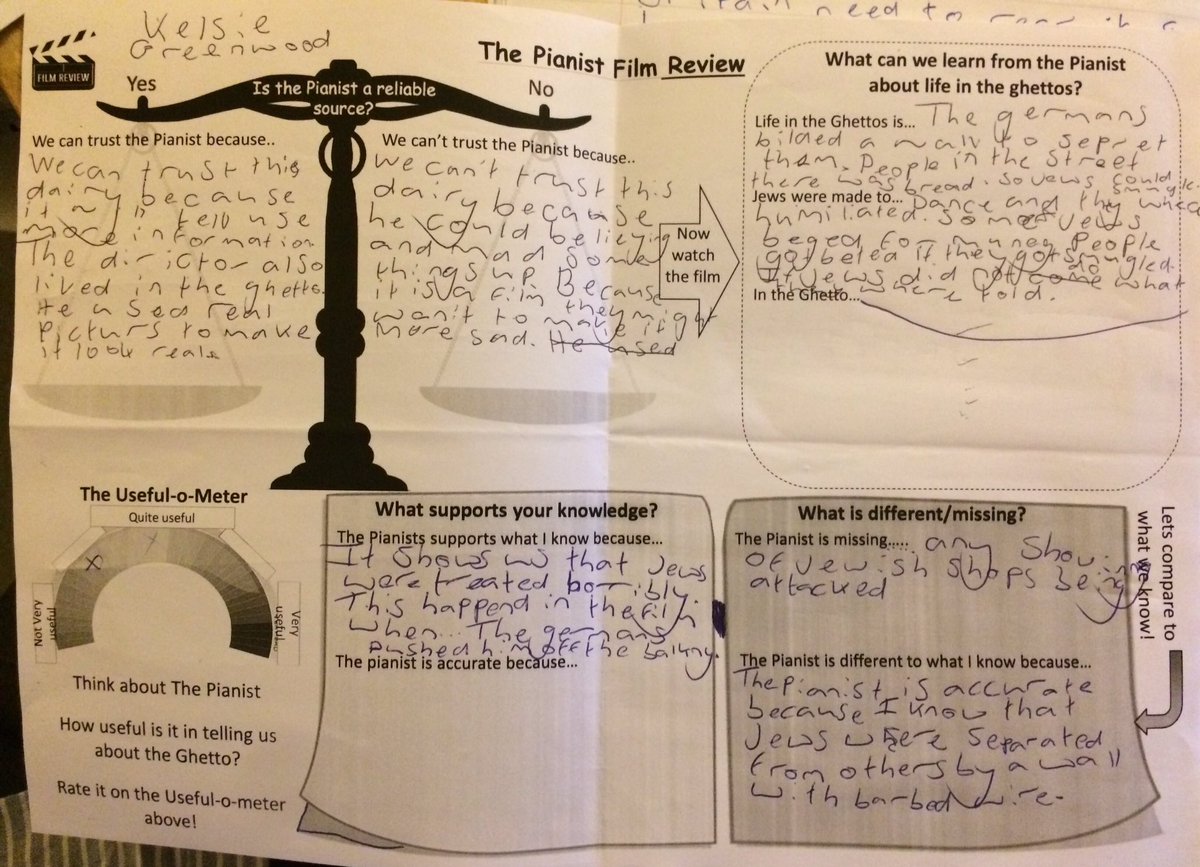 Britain need to
Kelsie
Greenwood
FILM REVIEW
The Pianist Film Review
Yes
Is the Pianist a reliable
source?
No
We can trust the Pianist because..
We can trust this
dairy because
it tell use
more information
The dirictor also
lived in the ghetto.
He used real
picturs to make
it look reals
We can't trust the Pianist because..
we can't trust this
dairy because
he could be lieying
and mad some
things up. Because
it is a film they might
wan't to make it
more sad. He used
Now
watch
the film
What can we learn from the Pianist
about life in the ghettos?
Life in the Ghettos is... The germans
bilded a wall to sepret
them. People in the street
there was bread. so Jews could
smugle.
Jews were made to... Dance and they where
humiliated. Some Jews
beged for muney People
got beted if they got smugled.
If Jews did not come do what
they where told.
In the Ghetto...
The Useful-o-Meter
Quite useful
Not Very
useful
Very
useful
Think about The Pianist
How useful is it in telling us
about the Ghetto?
Rate it on the Useful-o-meter
above!
What supports your knowledge?
The Pianists supports what I know because...
It shows us that Jews
were treated horribly.
This happend in the film
when... The germans
pushed him off the balkny.
The pianist is accurate because...
What is different/missing?
The Pianist is missing..... any showing
of Jewish shops being
attacked
The Pianist is different to what I know because...
The Pianist is accurate
because I know that
Jews where separated
from others by a wall
with barbed wire.
Lets compare to
what we know!